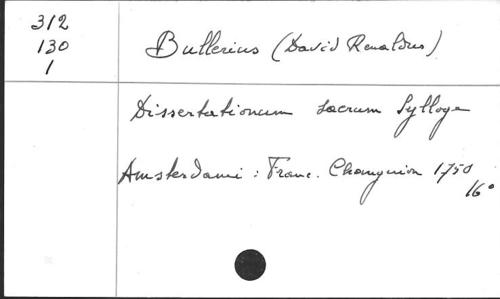 312
130
1
Bullerius (David Renaldus)
Dissertationum sacrum Sylloge
Amsterdami : Franc. Changuion 1750
16°